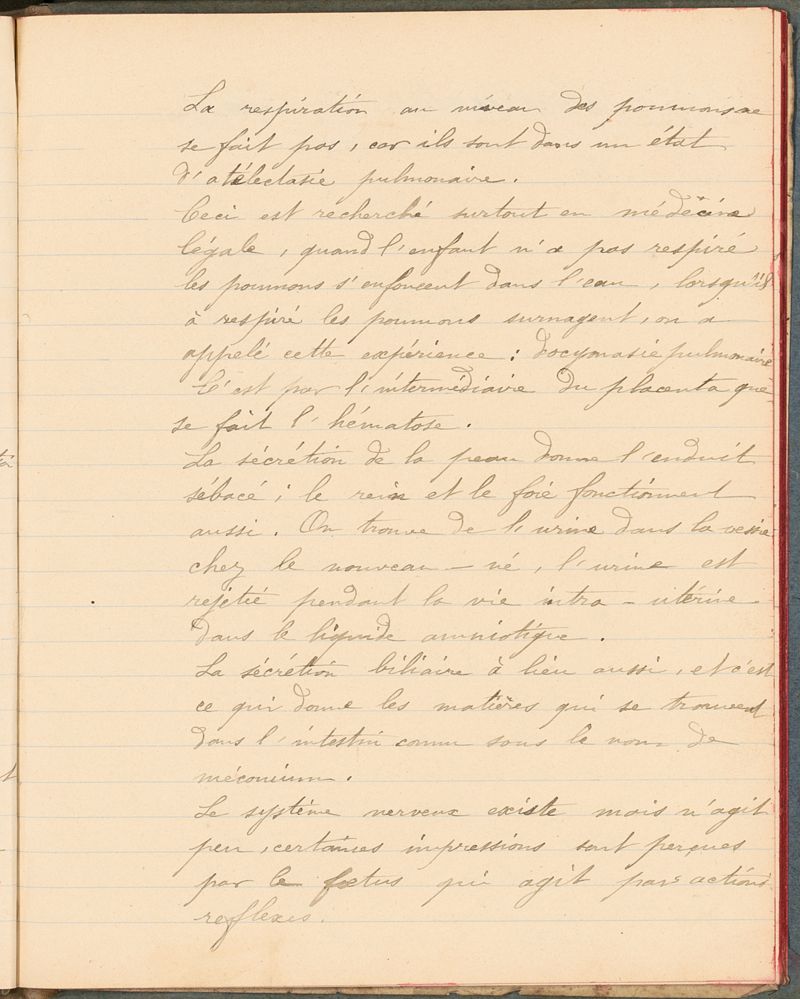 La respiration au niveau des poumons ne
se fait pas, car ils sont dans un état
d'atélectasie pulmonaire.
Ceci est recherché surtout en médecine
légale, quand l'enfant n'a pas respiré
les poumons s'enfoncent dans l'eau, lorsqu'il
à respiré les poumons surnagent, on a
appelé cette expérience : docymasie pulmonaire
C'est par l'intermédiaire du placenta que
se fait l'hématose.
La sécrétion de la peau donne l'enduit
sébacé ; le rein et le foie fonctionnent
aussi. On trouve de l'urine dans la vessie
chez le nouveau-né, l'urine est
rejetée pendant la vie intra-utérine
dans le liquide amniotique.
La sécrétion biliaire à lieu aussi, et c'est
ce qui donne les matières qui se trouvent
dans l'intestin connu sous le nom de
méconium.
Le système nerveux existe mais n'agit
peu, certaines impressions sont perçues
par le fœtus qui agit par actions
reflexes.